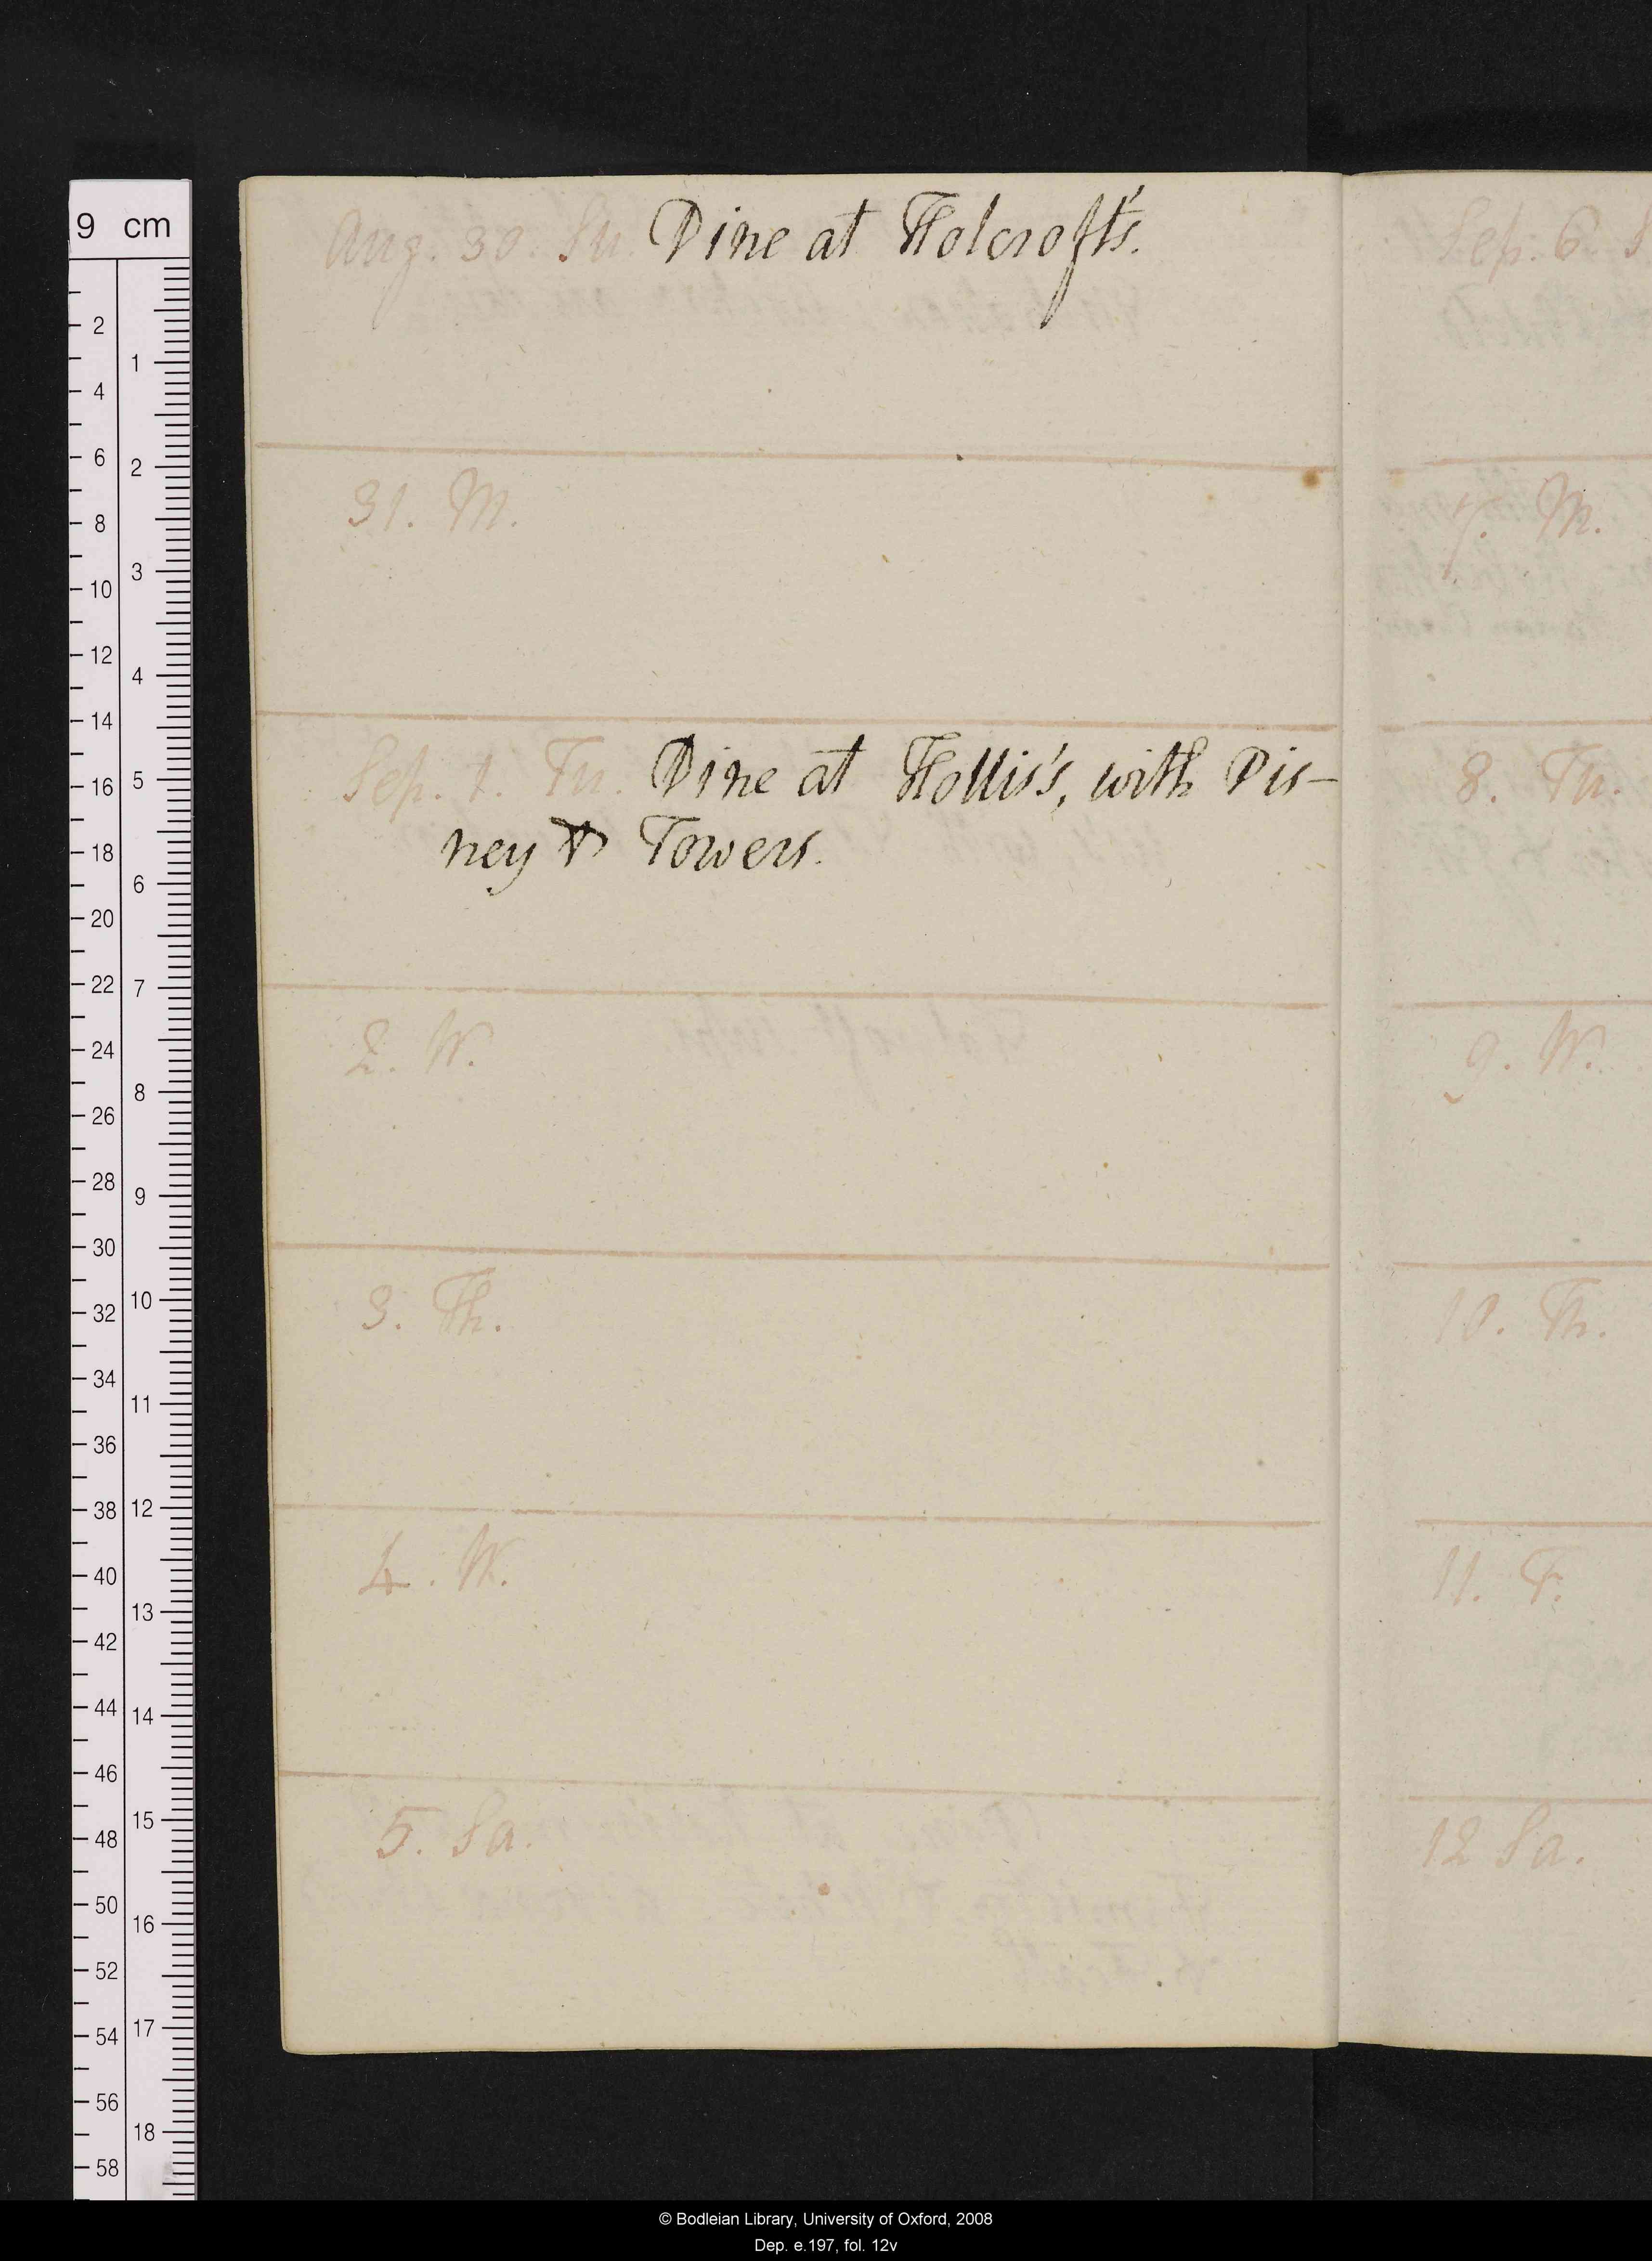 Aug. 30. Su. Dine at Holcroft's.
31. M.
Sep. 1. Tu. Dine at Hollis's, with Dis-
ney & Towers.
2. W.
3. Th.
4. W.
5. Sa.
Sep. 6. S
7. M.
8. Tu.
9. W.
10. Th.
11. F.
12 Sa.
9 cm
2
4
6
8
10
12
14
16
18
20
22
24
26
28
30
32
34
36
38
40
42
44
46
48
50
52
54
56
58
1
2
3
4
5
6
7
8
9
10
11
12
13
14
15
16
17
18
© Bodleian Library, University of Oxford, 2008
Dep. e.197, fol. 12v